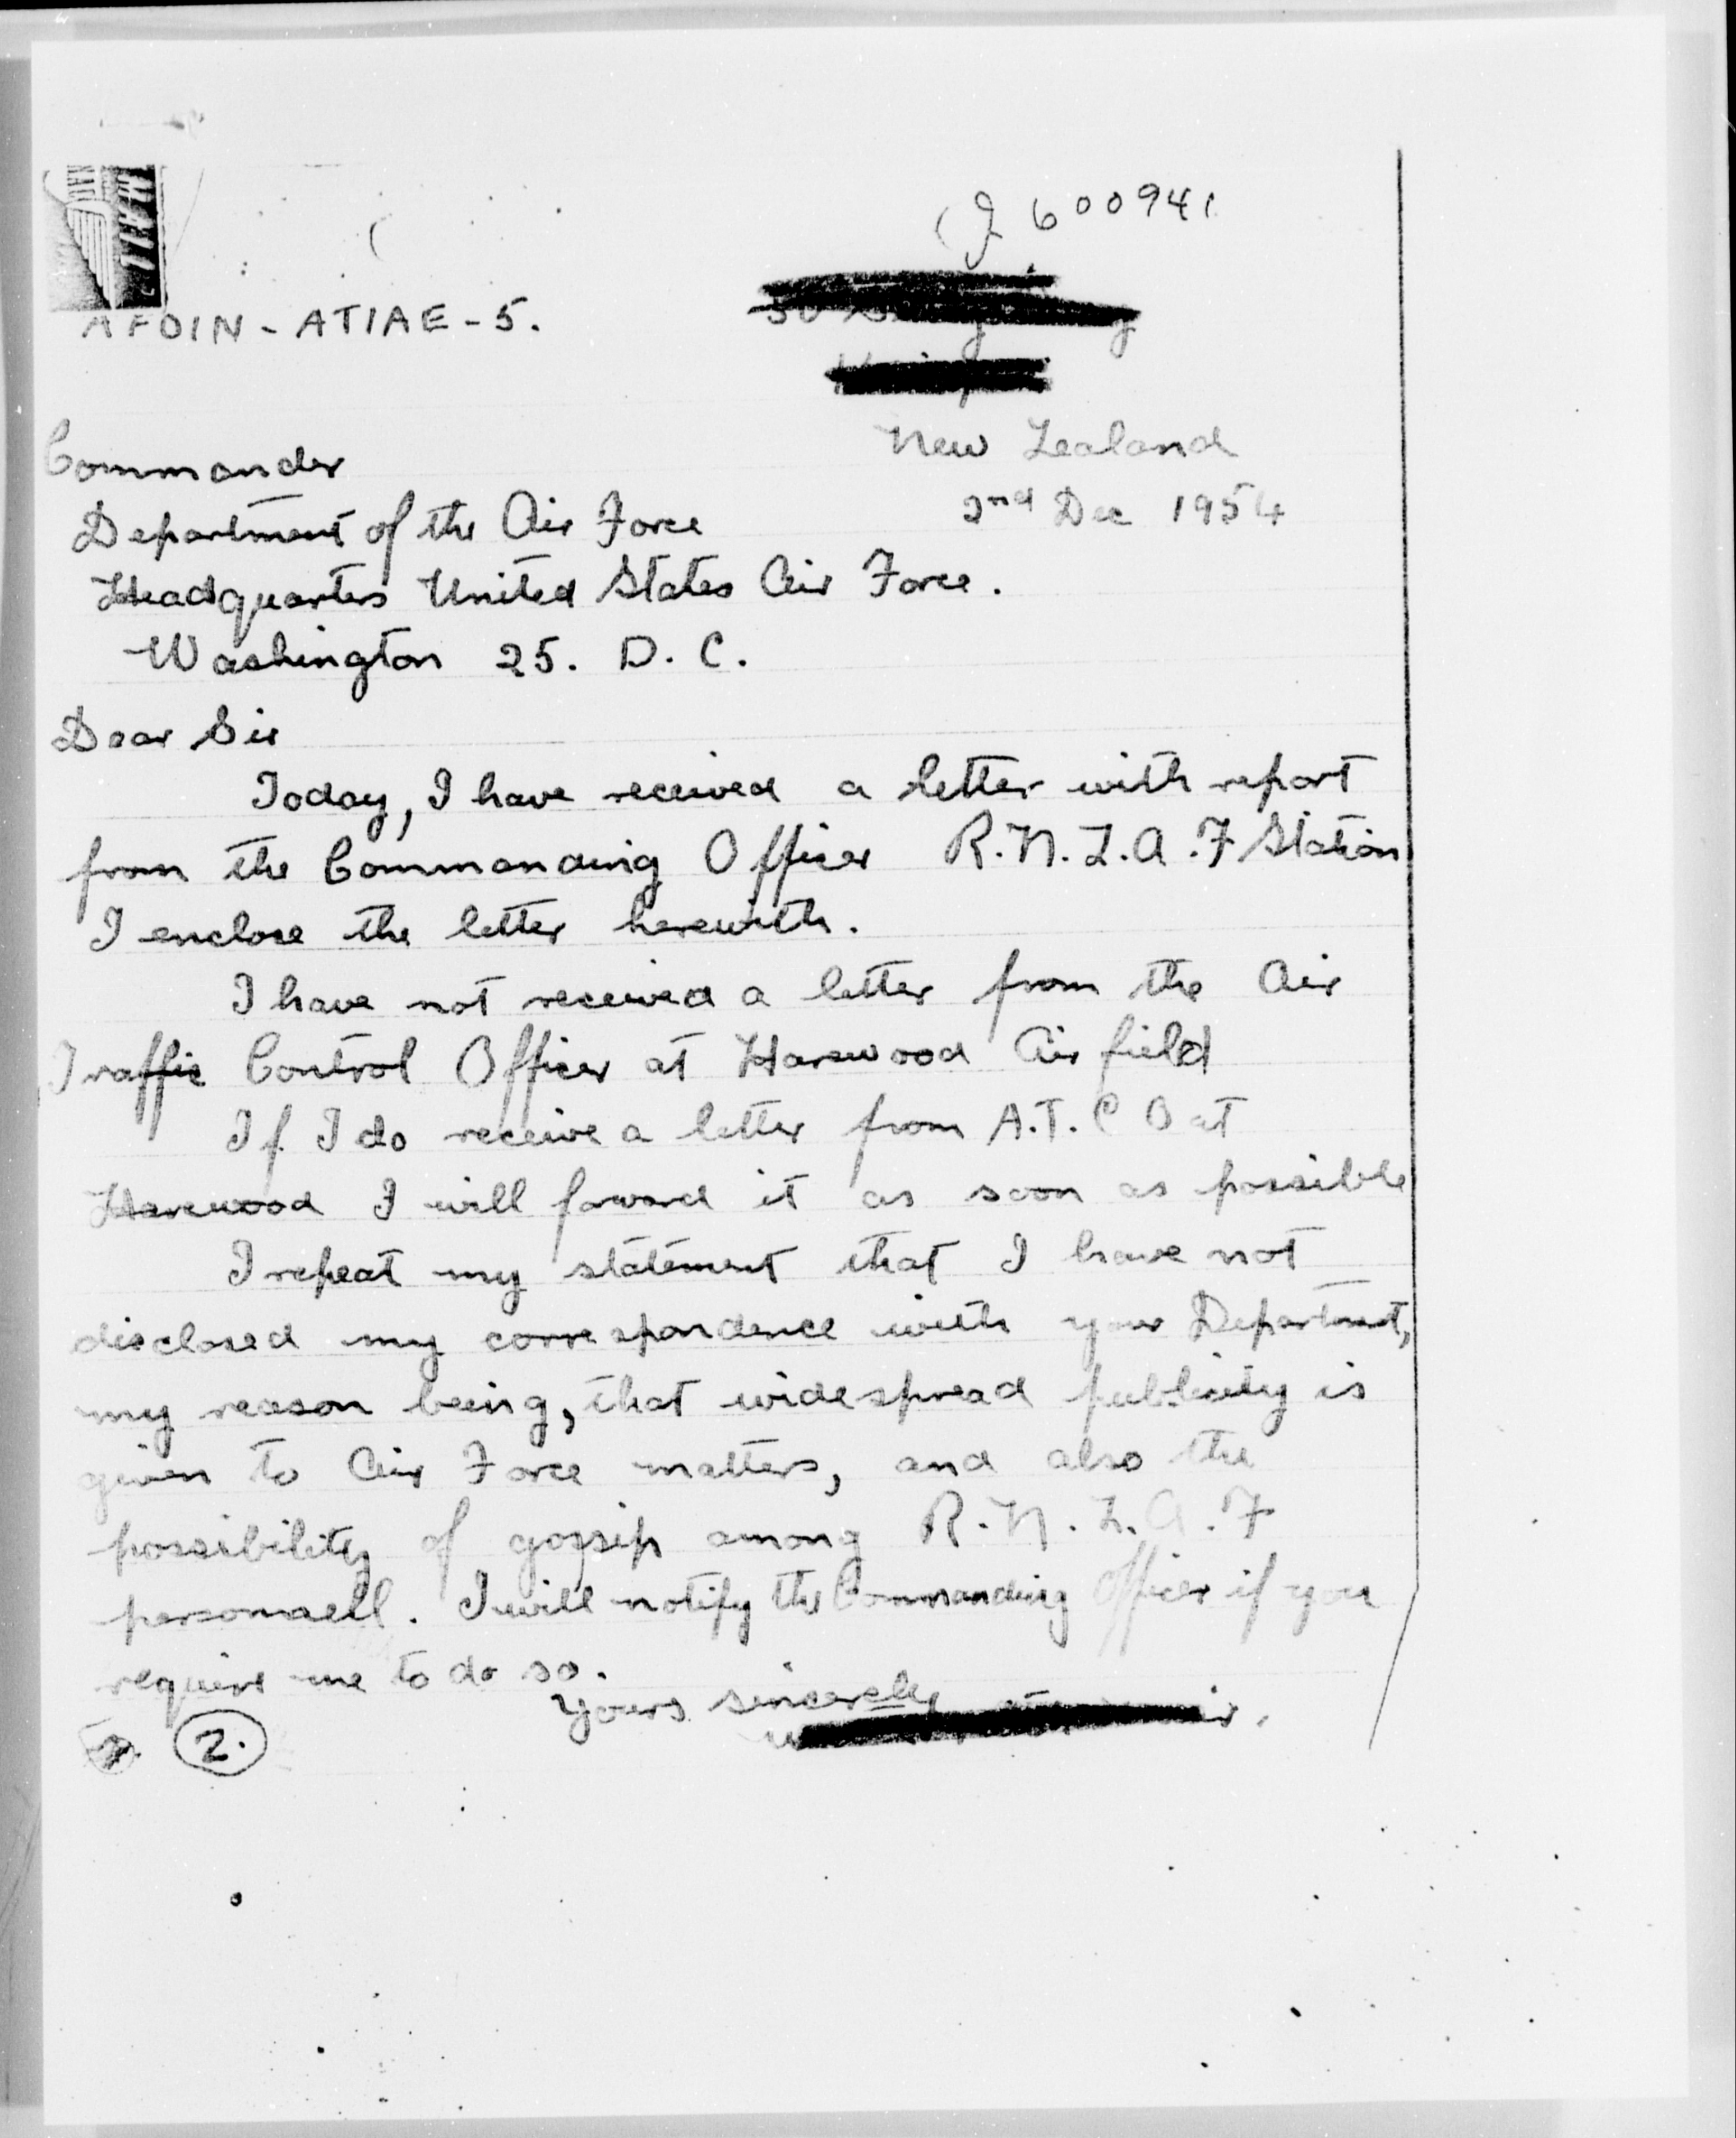 600941
AFOIN - ATIAE - 5.
New Zealand
2nd Dec 1954
Commander
Department of the Air Force
Headquarters United States Air Force.
Washington 25. D. C.
Dear Sir
Today, I have received a letter with report
from the Commanding Officer R.N.Z.A.F Station
I enclose the letter herewith.
I have not received a letter from the Air
Traffic Control Officer at Harewood Air field
If I do receive a letter from A.T.C O at
Harewood I will forward it as soon as possible
I repeat my statement that I have not
disclosed my correspondence with your Department,
my reason being, that widespread publicity is
given to Air Force matters, and also the
possibility of gossip among R.N.Z.A.F
personaell. I will notify the Commanding Officer if you
require me to do so.
Yours sincerely
2.